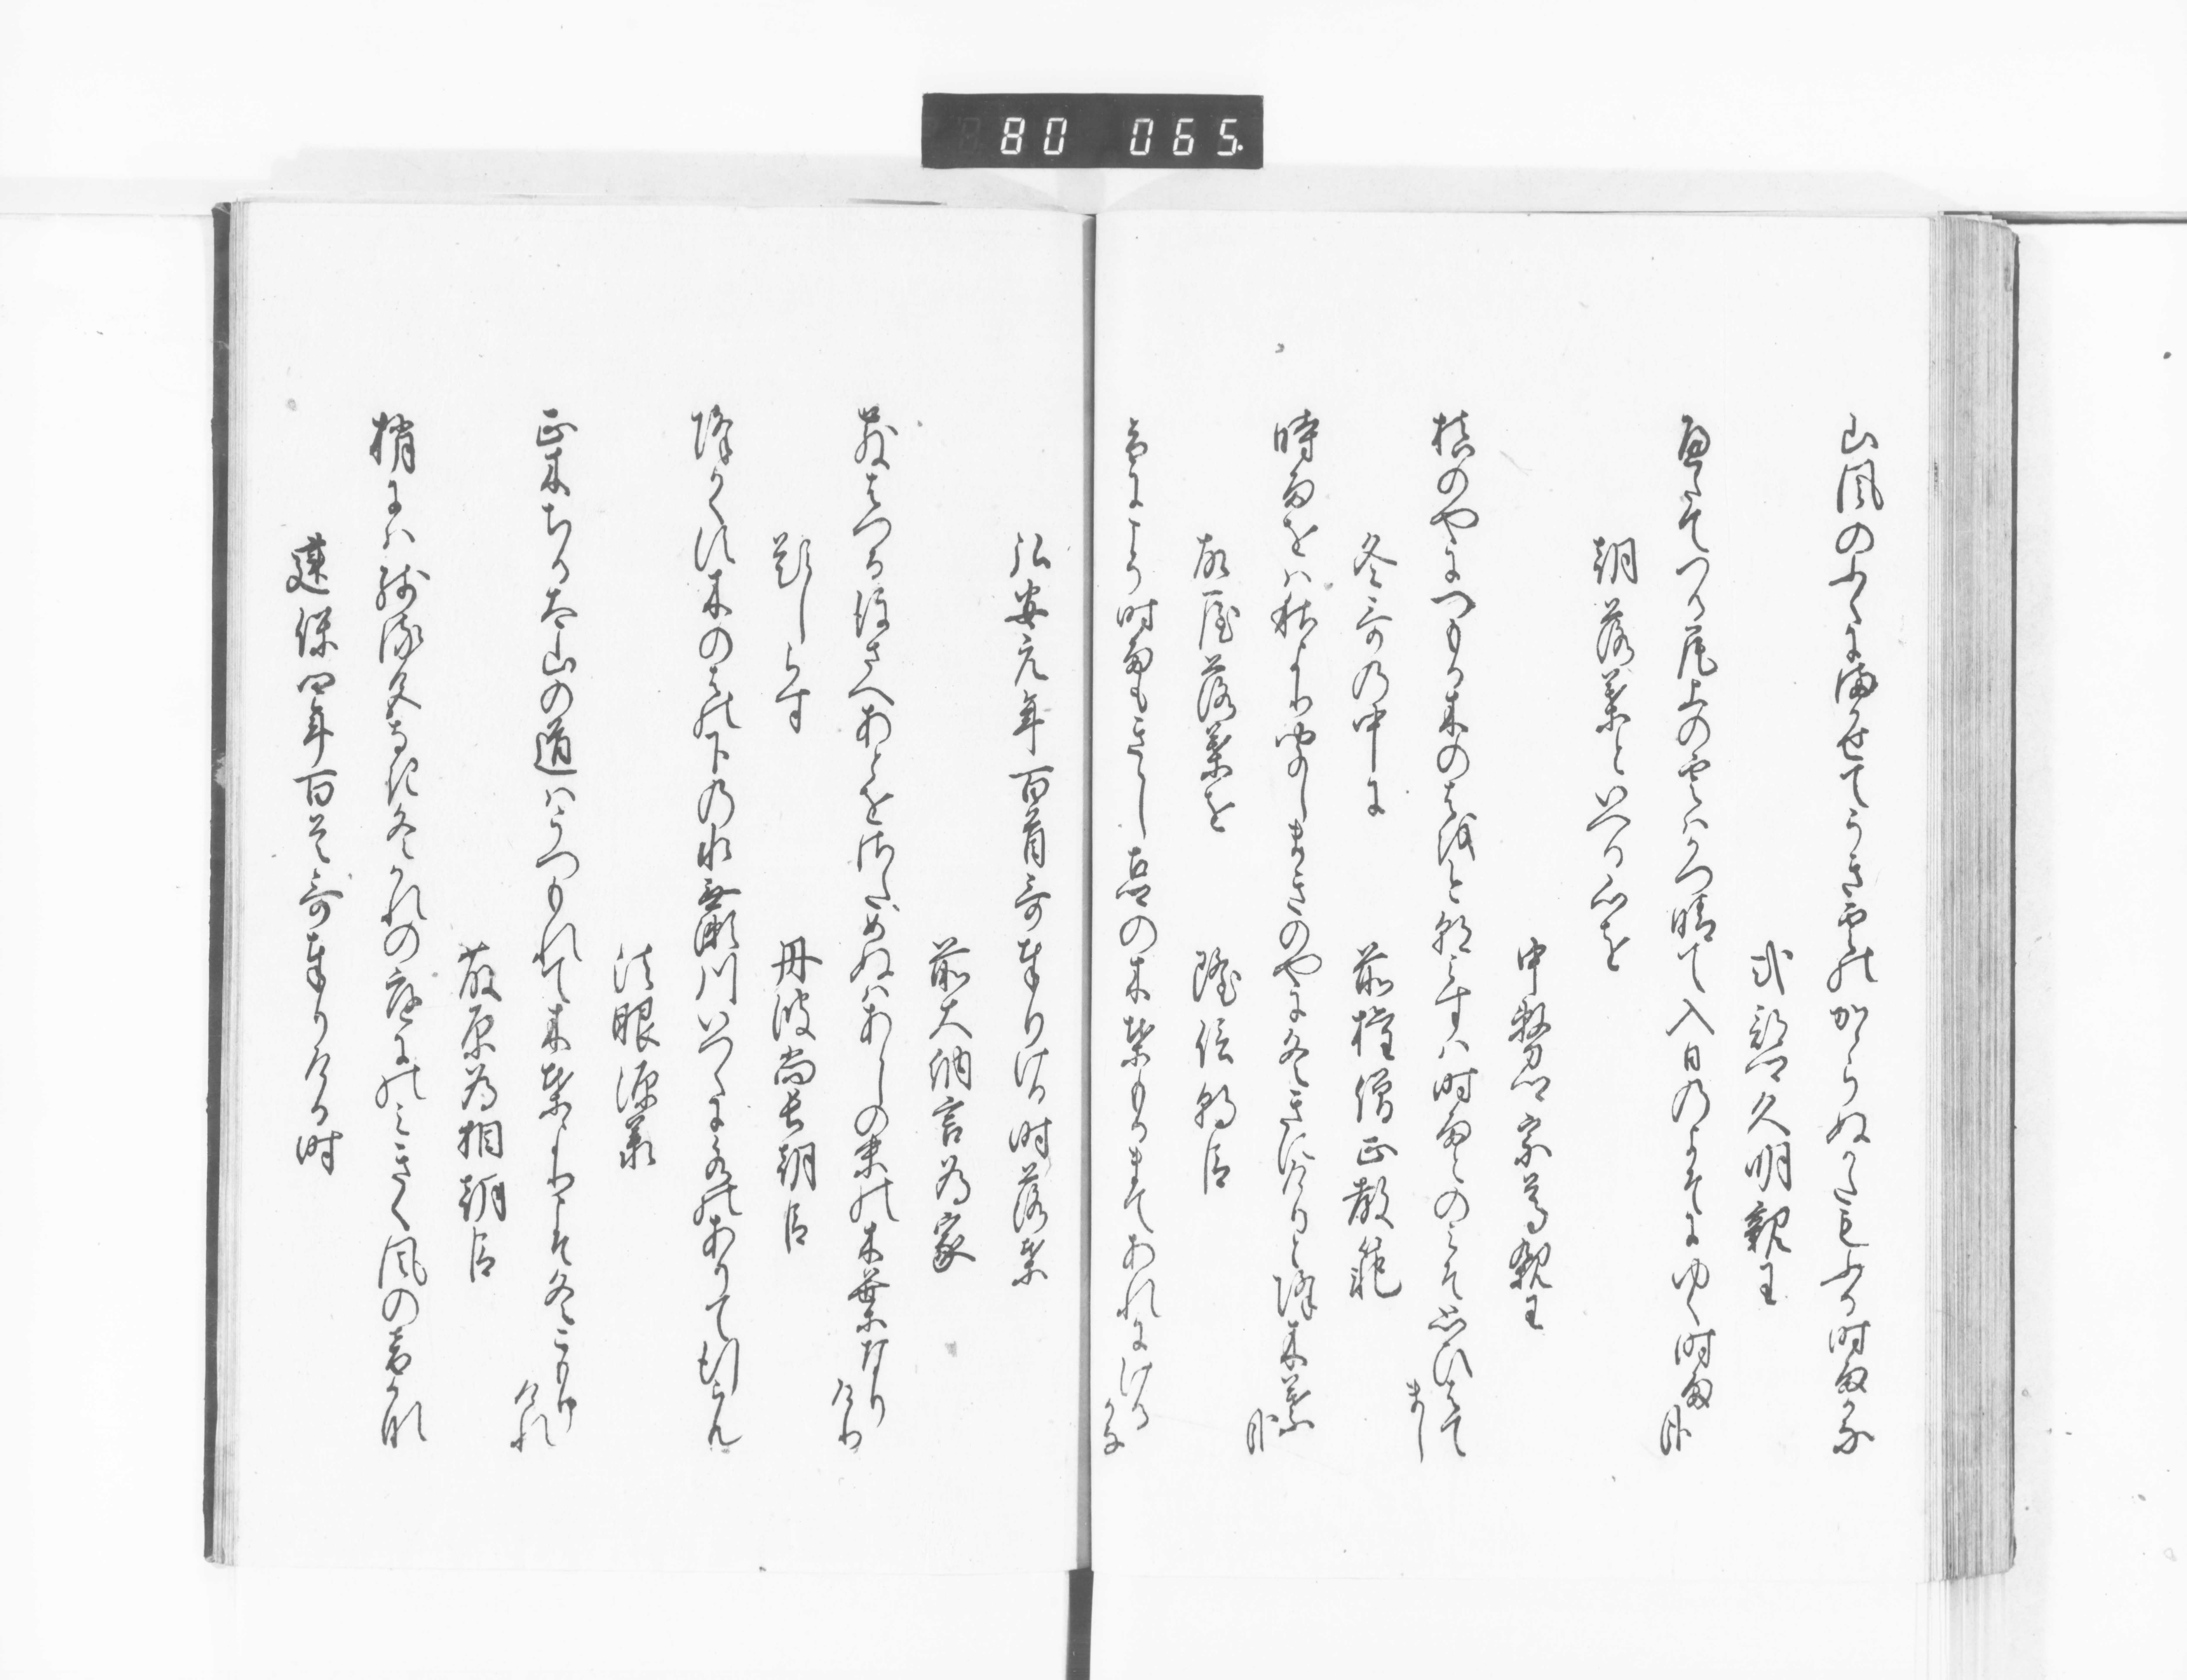 80 065
山風のふくにまかせてうき雲のかゝらぬかたもふる時雨かな
式部卿久明親王
尾上の雲はかつ晴て入日のよそにゆく時雨
朝落葉といへる心を
中務卿宗尊親王
槙のやにつもる木のはを時雨とのみそ思ひはてまし
冬哥の中に
前権僧正教範
時雨をは秋よりきゝしまきのやに冬きにけりと降木葉
故屋落葉を
隆信朝臣
音にこそ時雨もきゝし古郷の木葉もるまてあれにけるかな
弘安元年百首哥奉りける時落葉
前大納言為家
ちりはつる後さへあとをさためぬはあらしの末の木葉なりけり
題しらす
丹波尚長朝臣
降かくす木のはの下の水無瀬川いつくに水のありて行らん
法眼源承
正木ちる山の道はうつもれて木葉よりこそ冬こもりけれ
藤原為相朝臣
梢には残る冬かれの庭にのみきく風の音かな
建保四年百首哥奉りける時